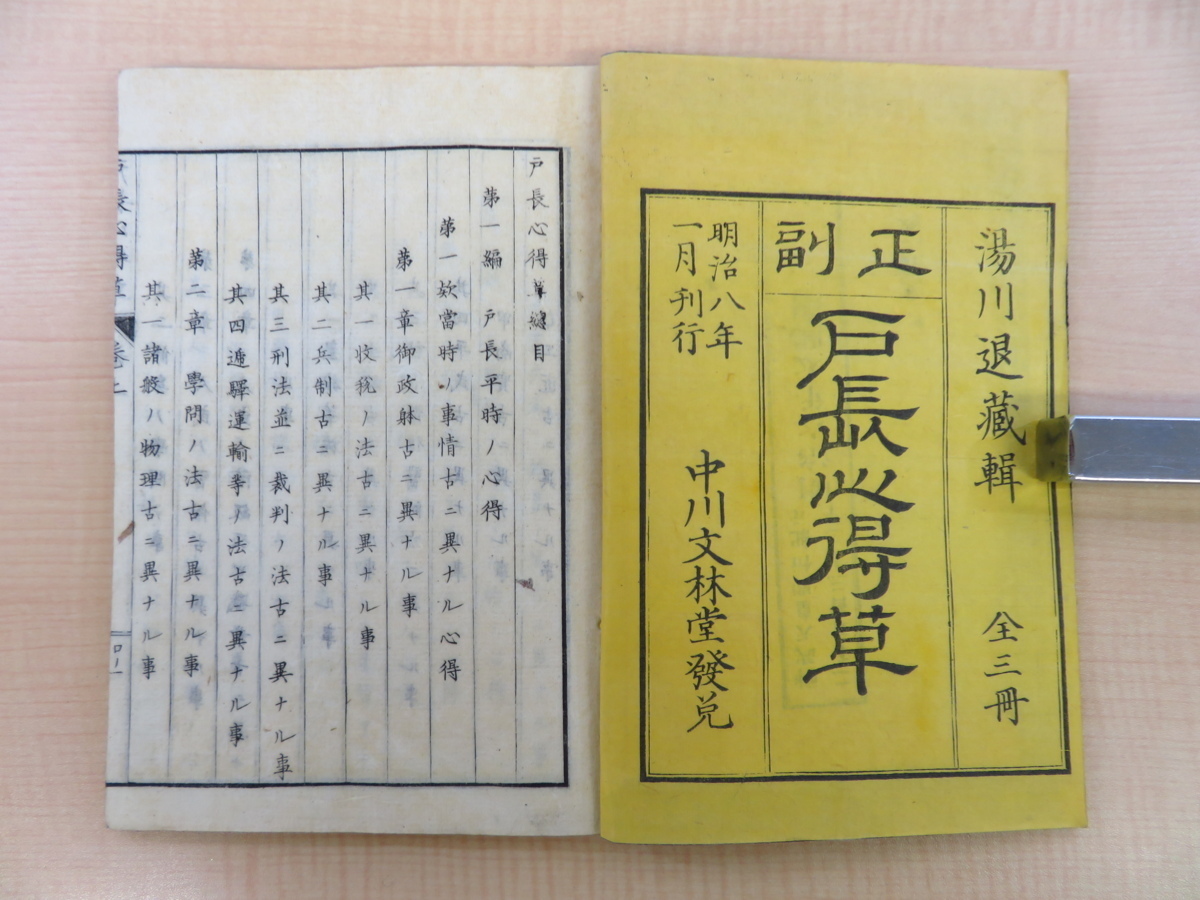 湯川退藏輯 全三冊
正副
戸長心得草
明治八年
一月刊行
中川文林堂發兌
戸長心得草總目
第一編 戸長平時ノ心得
第一欵當時ノ事情古ニ異ナル心得
第一章御政躰古ニ異ナル事
其一收税ノ法古ニ異ナル事
其二兵制古ニ異ナル事
其三刑法並ニ裁判ノ法古ニ異ナル事
其四遞驛運輸等ノ法古ニ異ナル事
第二章 學問ノ法古ニ異ナル事
其一諸般ノ物理古ニ異ナル事
戸長心得草 卷上